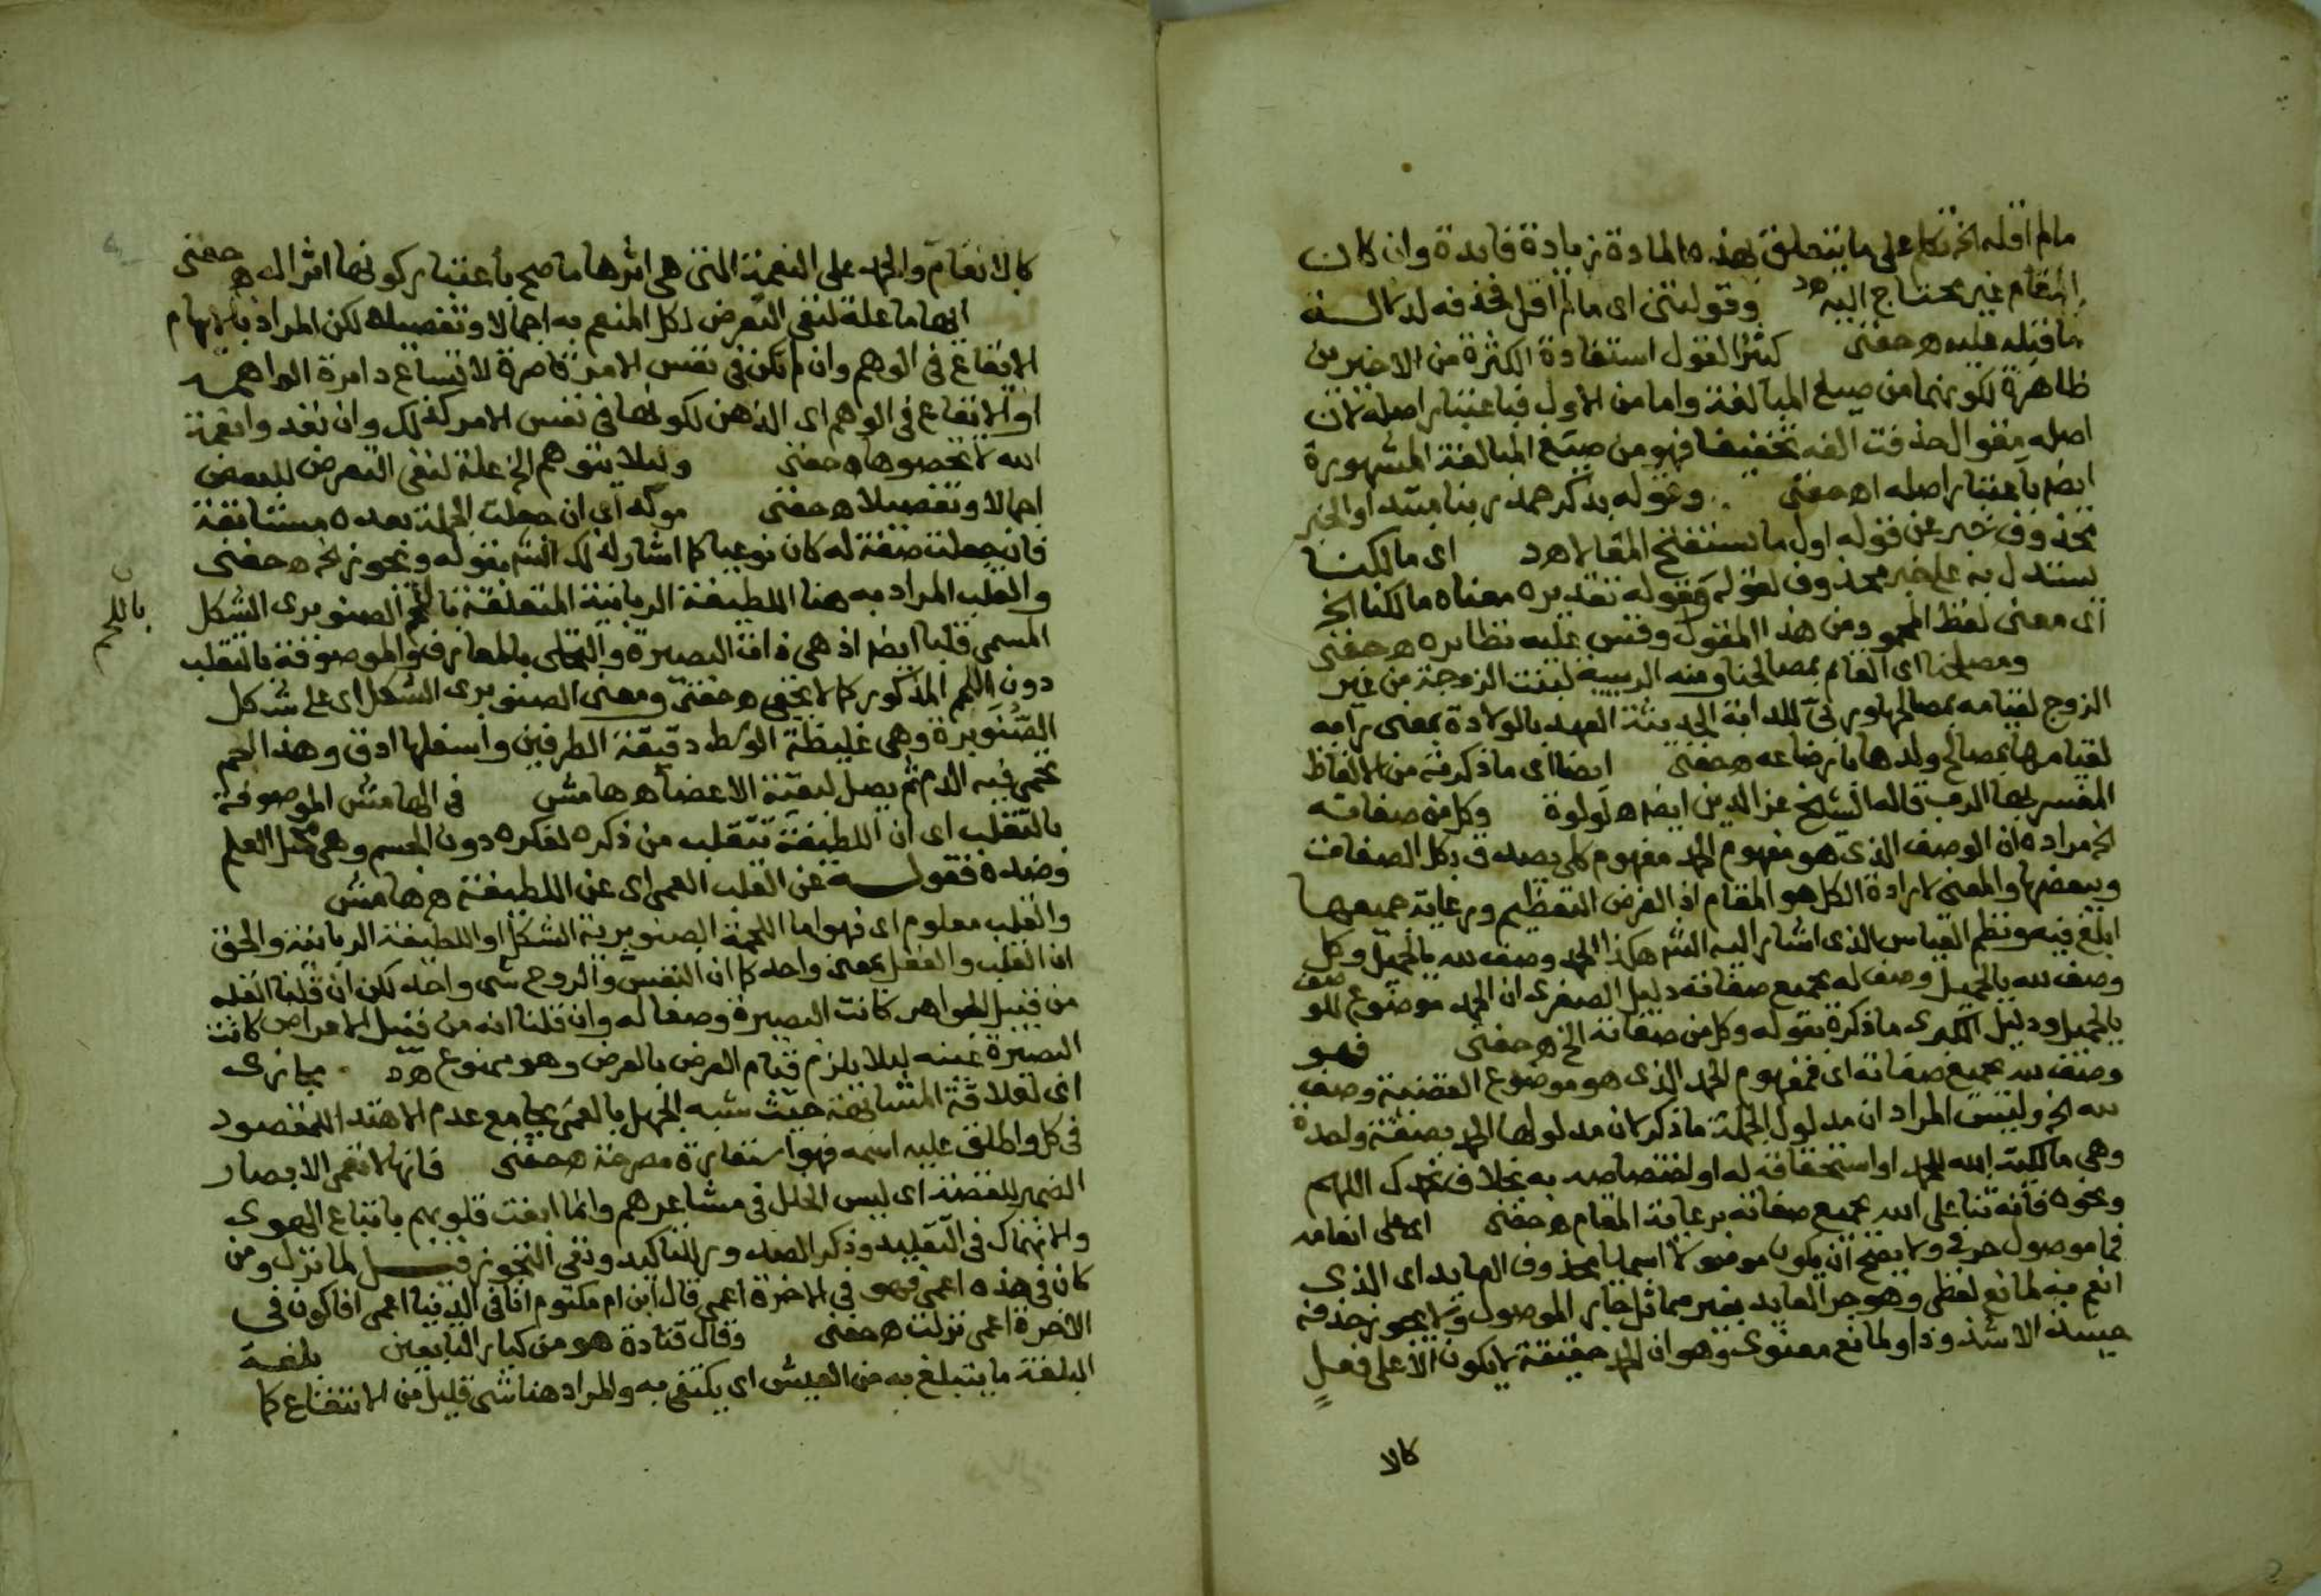 مالم اقله الخ تكلم على ما يتعلق بهذه المادة زيادة فايدة وان كان
المقام غير محتاج اليه اهـ وقولتنى اى مالم اقل فحذفه لدلالة
ما قبله عليه اهـ حفنى كثير القول استفادة الكثرة من الاخيرين
ظاهرة لكونهما من صيغ المبالغة واما من الاول فباعتبار اصله لان
اصله مقوال حذفت الفه تخفيفا فهو من صيغ المبالغة المشهورة
ايضا باعتبار اصله اهـ حفنى وقوله بذكر حمد ربنا مبتدا والخبر
محذوف خبر عن قوله اول ما نستفتح المقالا اهـ اى مالكنا
يستدل به على خبر محذوف لقوله وقوله تقديره معناه مالكنا الخ
اى معنى لفظ المجمو ومن هذا المقول وقس عليه نظايره اهـ حفنى
ومصلحنا اى القايم بمصالحنا ومنه الربيبة لبنت الزوجة من غير
الزوج لقيامه بمصالحها وربى للدابة الحديثة العهد بالولادة بمعنى رابه
لقيامها بمصالح ولدها بارضاعه اهـ حفنى ايضا اى ما ذكرته من الالفاظ
المفسر بها الرب قاله الشيخ عز الدين ايضا اهـ لولوة وكل من صفاته
الخ مراده ان الوصف الذى هو مفهوم الحمد مفهوم كلى يصدق بكل الصفات
وببعضها والمعنى لارادة الكل هو المقام اذ الغرض التعظيم ورعاية جميعها
ابلغ فيه ونظم القياس الذى اشار اليه الش هكذا الحمد وصف لله بالجميل وكل
وصف لله بالجميل وصف له بجميع صفاته دليل الصغرى ان الحمد موضوع للوصف
بالجميل ودليل الكبرى ما ذكره بقوله وكل من صفاته الخ اهـ حفنى فهو
وصف لله بجميع صفاته اى فمفهوم الحمد الذى هو موضوع القضية وصف
لله الخ وليس المراد ان مدلول الجملة ما ذكر لان مدلولها الحمد بصفة واحدة
وهى مالكية الله للحمد او استحقاقه له او اختصاصه به بخلاف نحمدك اللهم
ونحوه فانه ثنا على الله بجميع صفاته برعاية المقام اهـ حفنى اى على انعامه
فما موصول حرفى ولا يصح ان يكون موصولا اسميا بحذوف العايد اى الذى
انعم به لمانع لفظى وهو جر العايد بغير مماثل جار الموصول ولا يجوز حذفه
حينئذ الا شذوذا ولمانع معنوى وهو ان الحمد حقيقة لا يكون الا على فعل
كالا
كالانعام والحمد على النعمة التى هى اثرها ما صح باعتبار كونها اثرا له اهـ حفنى
ايهاما علة لنفى التعرض لكل المنعم به اجمالا وتفصيلا لكن المراد بالايهام
الايقاع فى الوهم وان لم تكن فى نفس الامر قاصرة لاتساع دايرة الواهمة
او الايقاع فى الوهم اى الذهن لكونها فى نفس الامر كذلك وان تعدوا نعمة
الله لا تحصوها اهـ حفنى وليلا يتوهم الخ علة لنفى التعرض للبعض
اجمالا وتفصيلا اهـ حفنى موكد اى ان جعلت الجملة بعده مستانفة
فان جعلت صفة له كان نوعيا كما اشار لذلك الش بقوله ويجوز الخ اهـ حفنى
والقلب المراد به هنا اللطيفة الربانية المتعلقة باللحم الصنوبرى الشكل
باللحم
المسمى قلبا ايضا اذ هى ذات البصيرة والتحلى بالمعارف والموصوفة بالتقلب
دون اللحم المذكور كما لا يخفى اهـ حفنى ومعنى الصنوبرى الشكل اى على شكل
الصنوبرة وهى غليظة الوسط دقيقة الطرفين واسفلها ادق وهذا اللحم
يحمى فيه الدم ثم يصل لبقية الاعضا اهـ هامش فى الهامش الموصوفة
بالتقلب اى ان اللطيفة تتقلب من ذكره لفكره دون الجسم وهى محل العلم
وضده فقوله عن القلب العمى اى عن اللطيفة اهـ هامش
والقلب معلوم اى فهو اما اللحمة الصنوبرية الشكل او اللطيفة الربانية والحق
ان القلب والعقل بمعنى واحد كما ان النفس والروح شى واحد لكن ان قلنا العقل
من قبيل الجواهر كانت البصيرة وصفا له وان قلنا انه من قبيل الاعراض كانت
البصيرة عينه ليلا يلزم قيام العرض بالعرض وهو ممنوع اهـ مجازى
اى لعلاقة المشابهة حيث شبه الجهل بالعمى بجامع عدم الاهتدا للمقصود
فى كل واطلق عليه اسمه فهو استعارة مصرحة اهـ حفنى فانها لا تعمى الابصار
الضمير للقصة اى ليس الخلل فى مشاعرهم وانما ايفت قلوبهم باتباع الهوى
والانهماك فى التقليد وذكر الصدور للتاكيد ونفى التجوز قيل لما نزل ومن
كان فى هذه اعمى فهو فى الاخرة اعمى قال ابن ام مكتوم انا فى الدنيا اعمى افاكون فى
الاخرة اعمى نزلت اهـ حفنى وقال قتادة هو من كبار التابعين بلغة
البلغة ما يتبلغ به من العيش اى يكتفى به والمراد هنا شى قليل من الانتفاع كما